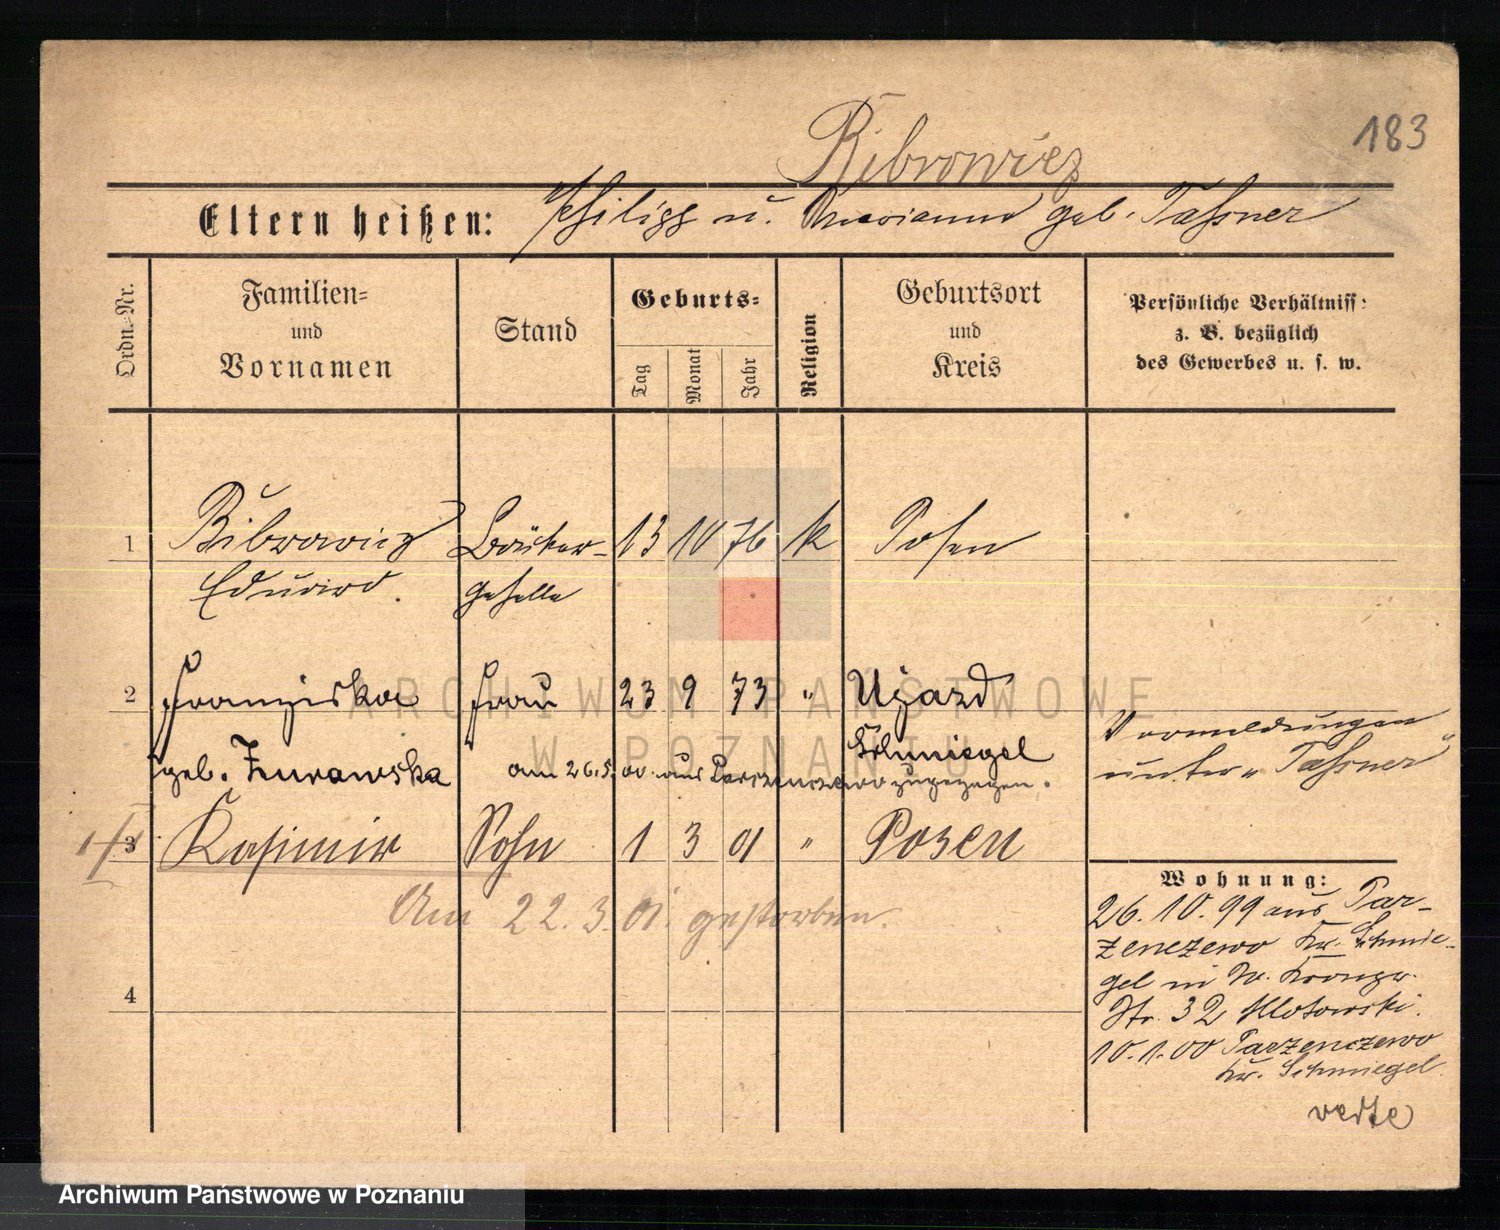 183
Bibrowicz
Eltern heißen: Philipp u. Marianna geb. Taßner
Ordn.-Nr.
Familien-
und
Vornamen
Stand
Geburts-
Tag
Monat
Jahr
Religion
Geburtsort
und
Kreis
Persönliche Verhältniss-
z. B. bezüglich
des Gewerbes u. s. w.
1 Bibrowicz Böttcher- 13 10 76 k Posen
Eduard. geselle
2 Franziska Frau 23 9 73 " Ujazd
geb. Zurawska Schmiegel
am 26.5.00 aus Parzenczewo zugezogen.
Vormeldungen
unter "Taßner"
3 Kasimir Sohn 1 3 01 " Posen
Am 22.3.01. gestorben.
4
Wohnung:
26.10.99 aus Par-
zenczewo Kr. Schmie-
gel in Kronpr.
Str. 32
10.1.00 Parzenczewo
Kr. Schmiegel.
verte
ARCHIWUM PAŃSTWOWE
W POZNANIU
Archiwum Państwowe w Poznaniu